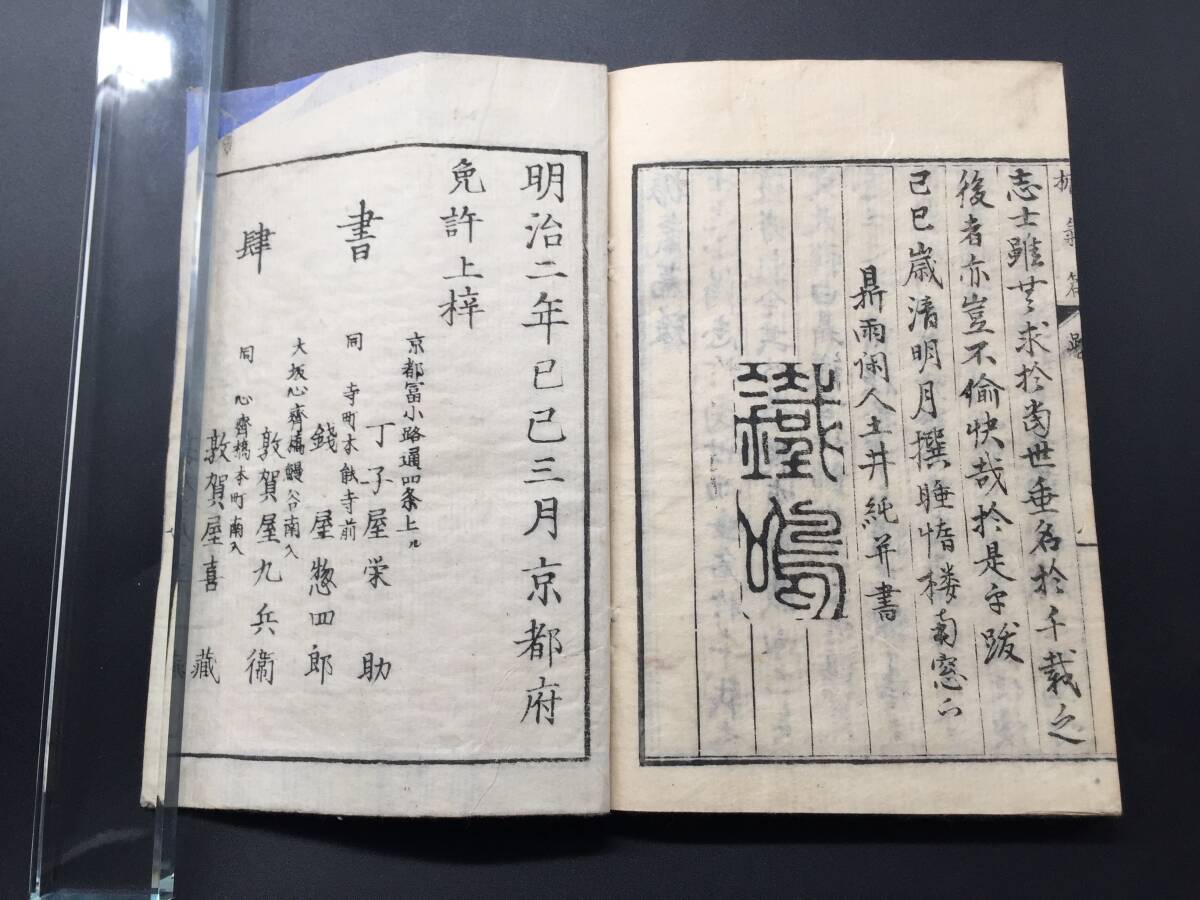 志士雖無求於当世垂名於千載之
後者亦豈不愉快哉於是乎跋
己巳歳清明月撰睡惰楼南窓下
鼎雨閑人土井純并書
明治二年己巳三月京都府
免許上梓
書
肆
京都冨小路通四条上ル
丁子屋栄助
同 寺町本能寺前
銭屋惣四郎
大坂心斎橋鰻谷南入
敦賀屋九兵衛
同 心斎橋本町南入
敦賀屋喜蔵